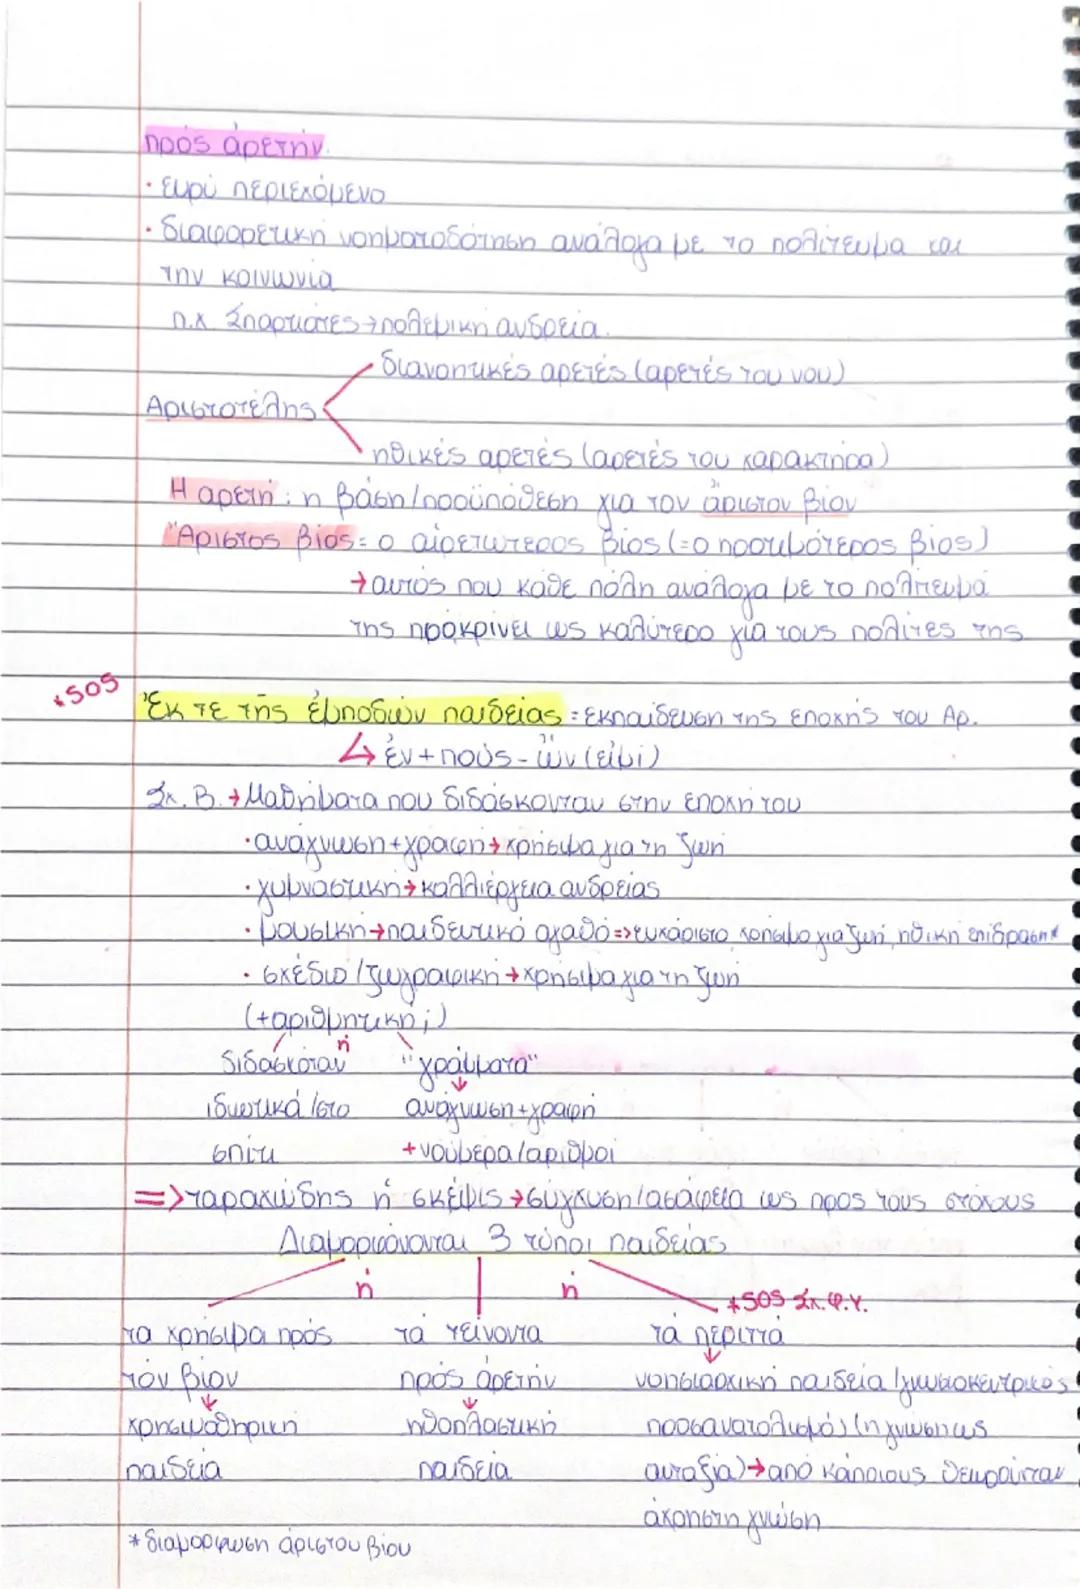 πρὸς ἀρετήν.
· ευρύ περιεχόμενο
· διαφορετική νοηματοδότηση ανάλογα με το πολίτευμα και
την κοινωνία
π.χ. Σπαρτιάτες → πολεμική ανδρεία.
διανοητικές αρετές (αρετές του νου)
Αριστοτέλης
ηθικές αρετές (αρετές του χαρακτήρα)
Η αρετή: η βάση/προϋπόθεση για τον ἄριστον βίον
Ἄριστος βίος = ο αἱρετώτερος βίος (=ο προτιμότερος βίος)
→ αυτός που κάθε πόλη ανάλογα με το πολίτευμά
της προκρίνει ως καλύτερο για τους πολίτες της
*SOS
Ἔκ τε τῆς ἐμποδὼν παιδείας = εκπαίδευση της εποχής του Αρ.
↳ ἐν + πούς - ὢν (εἰμί)
Σχ. Β. → Μαθήματα που διδάσκονταν στην εποχή του
· ανάγνωση + γραφή → χρήσιμα για τη ζωή
· γυμναστική → καλλιέργεια ανδρείας
· μουσική → παιδευτικό αγαθό => ευχάριστο, χρήσιμο για ζωή, ηθική επίδραση*
· σχέδιο / ζωγραφική → χρήσιμα για τη ζωή
(+αριθμητική;)
διδασκόταν ή "γράμματα"
ιδιωτικά/στο ανάγνωση + γραφή
σπίτι + νούμερα/αριθμοί
=> ταραχώδης ἡ σκέψις → σύγχυση/ασάφεια ως προς τους στόχους
Διαμορφώνονται 3 τύποι παιδείας
ή ή
*SOS Σχ. Φ.Υ.
τα χρήσιμα πρὸς τὰ τείνοντα τὰ περιττὰ
τὸν βίον πρὸς ἀρετήν νοησιαρχική παιδεία/γνωσιοκεντρικός
χρησιμοθηρική ηθοπλαστική προσανατολισμός (η γνώση ως
παιδεία παιδεία αυταξία) → από κάποιους θεωρούνται
άχρηστη γνώση
* διαμόρφωση άριστου βίου